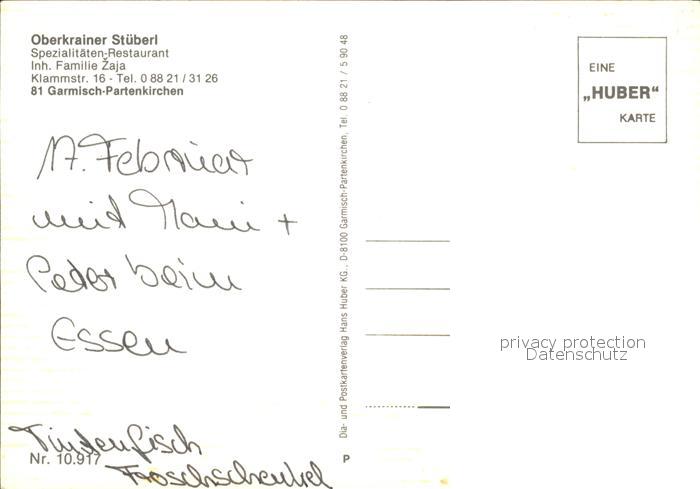 Oberkrainer Stüberl
Spezialitäten-Restaurant
Inh. Familie Žaja
Klammstr. 16 - Tel. 0 88 21 / 31 26
81 Garmisch-Partenkirchen
17. Februar
mit Mani +
Peter beim
Essen
Tintenfisch
Nr. 10.917
Froschschenkel
Dia- und Postkartenverlag Hans Huber KG., D-8100 Garmisch-Partenkirchen, Tel. 0 88 21 / 5 90 48
P
EINE
„HUBER“
KARTE
privacy protection
Datenschutz